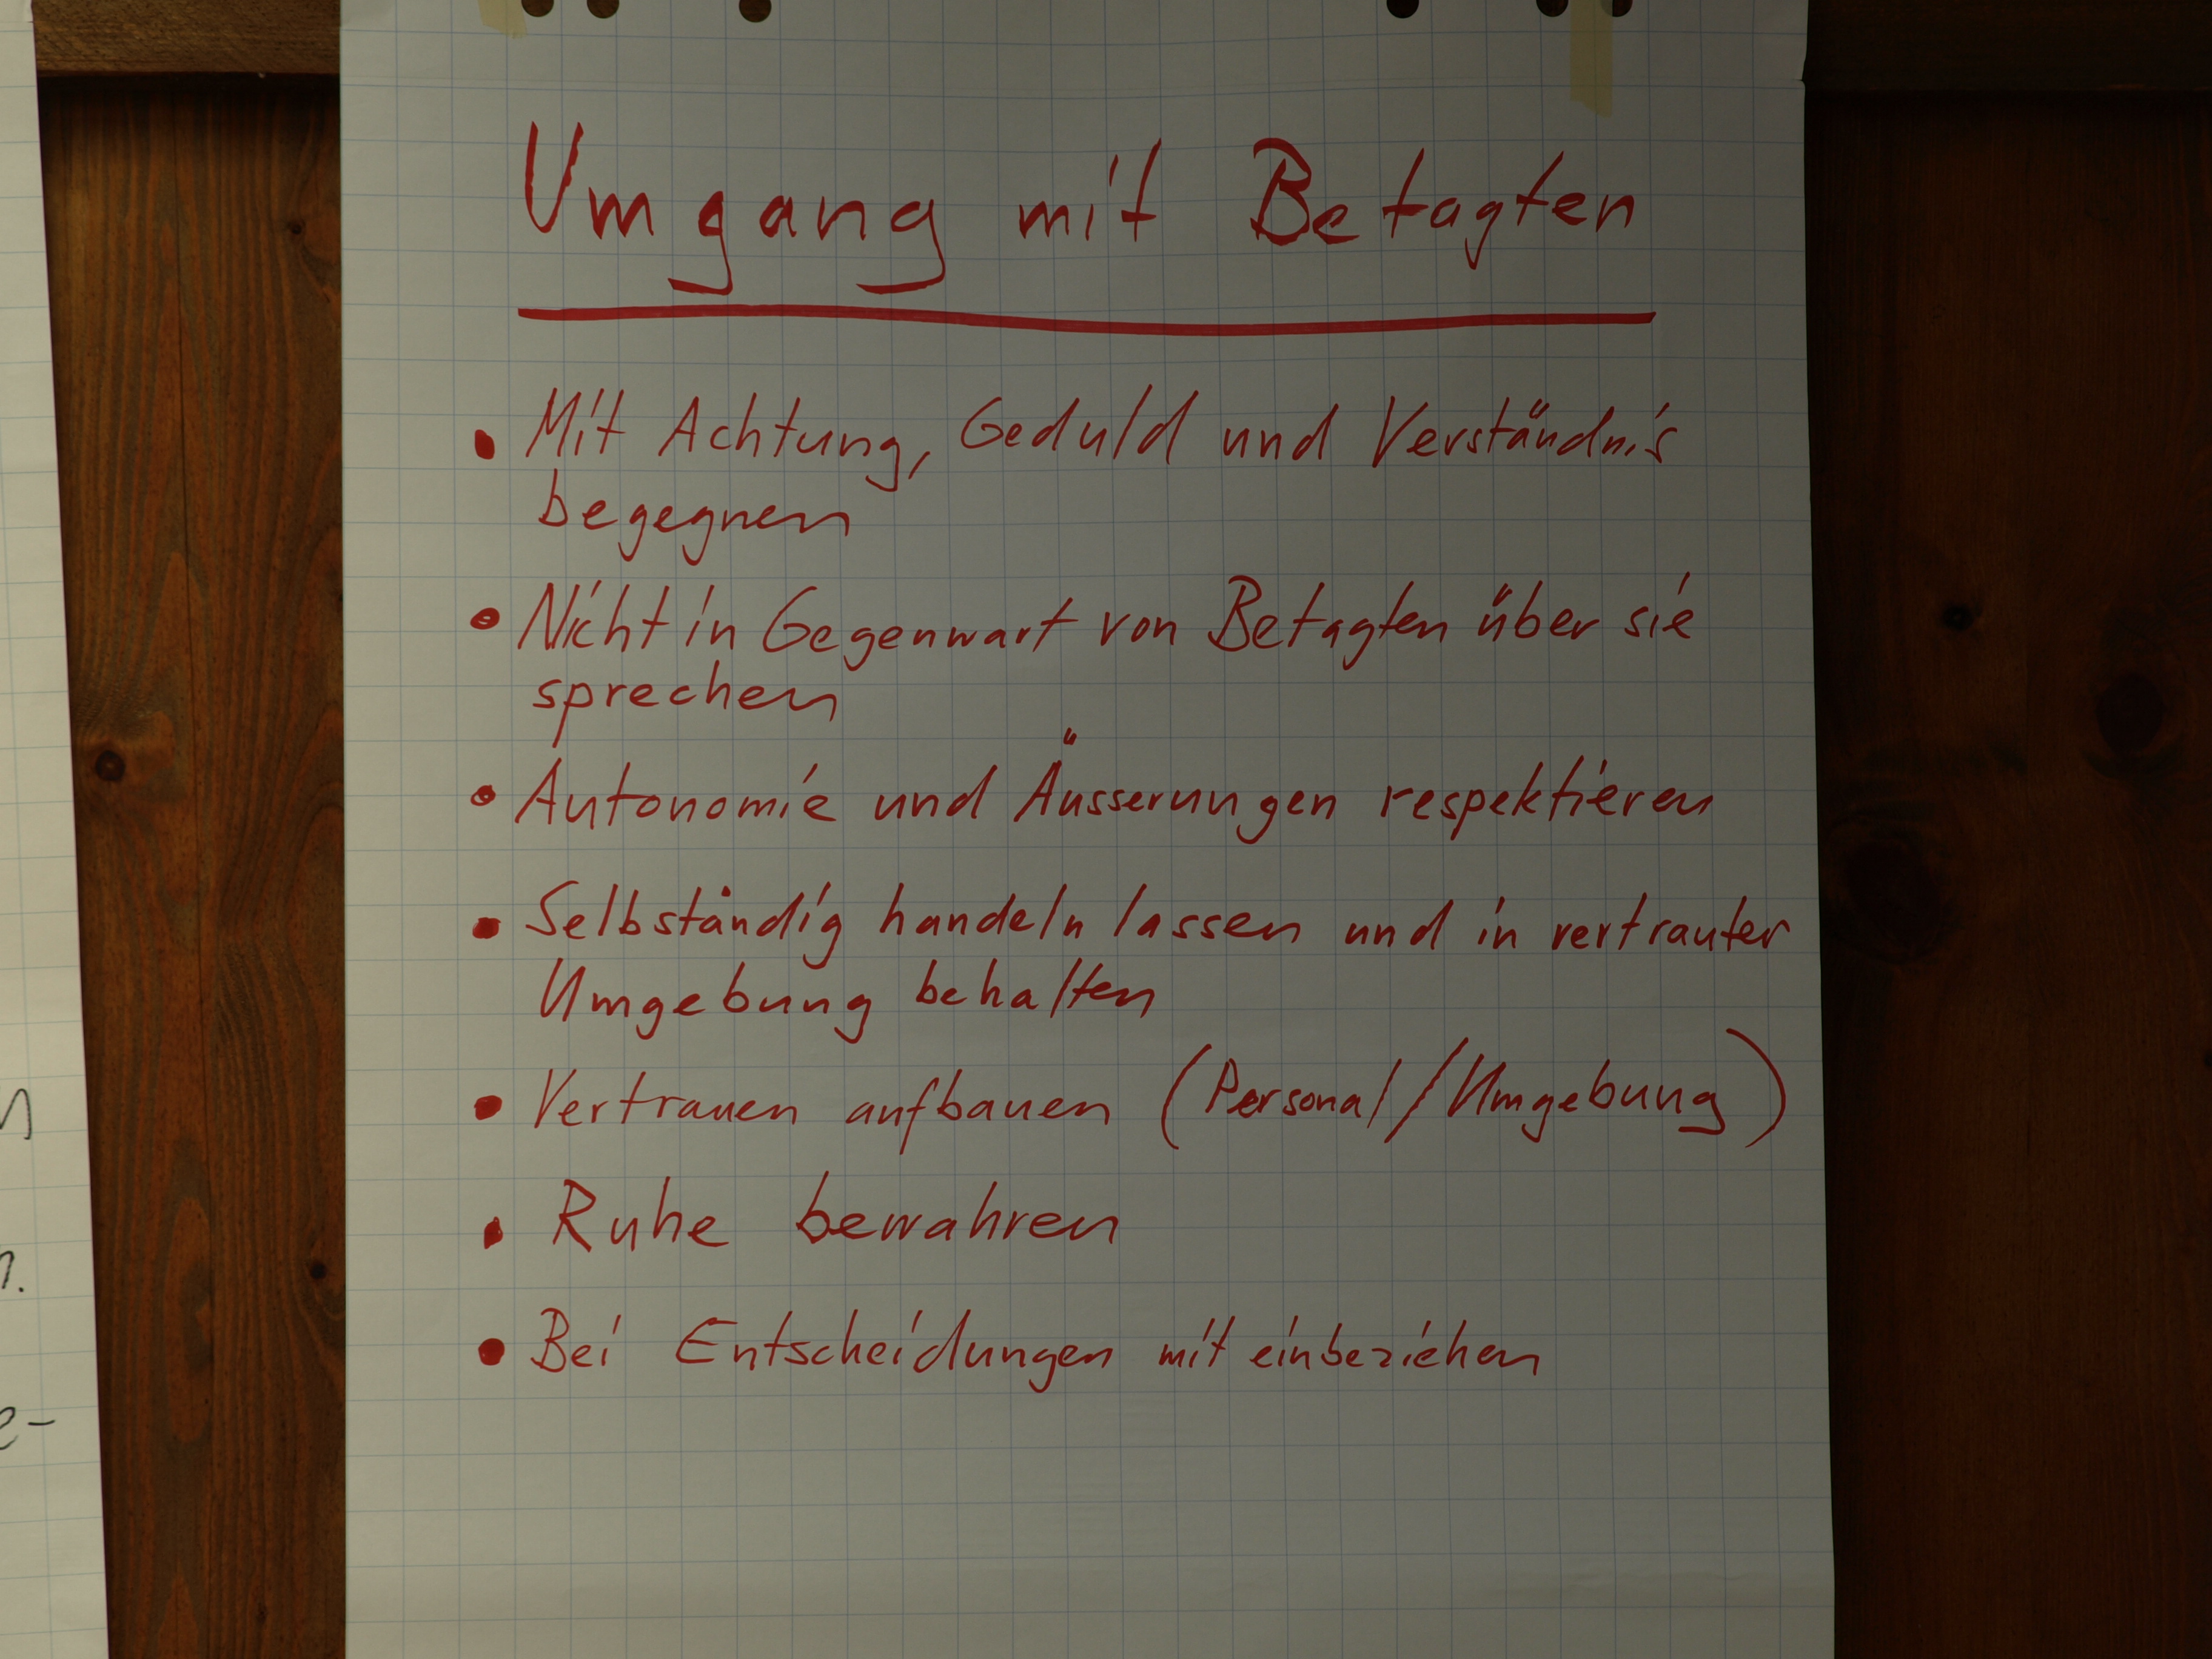 Umgang mit Betagten
• Mit Achtung, Geduld und Verständnis
begegnen
• Nicht in Gegenwart von Betagten über sie
sprechen
• Autonomie und Äusserungen respektieren
• Selbständig handeln lassen und in vertrauter
Umgebung behalten
• Vertrauen aufbauen (Personal/Umgebung)
• Ruhe bewahren
• Bei Entscheidungen mit einbeziehen